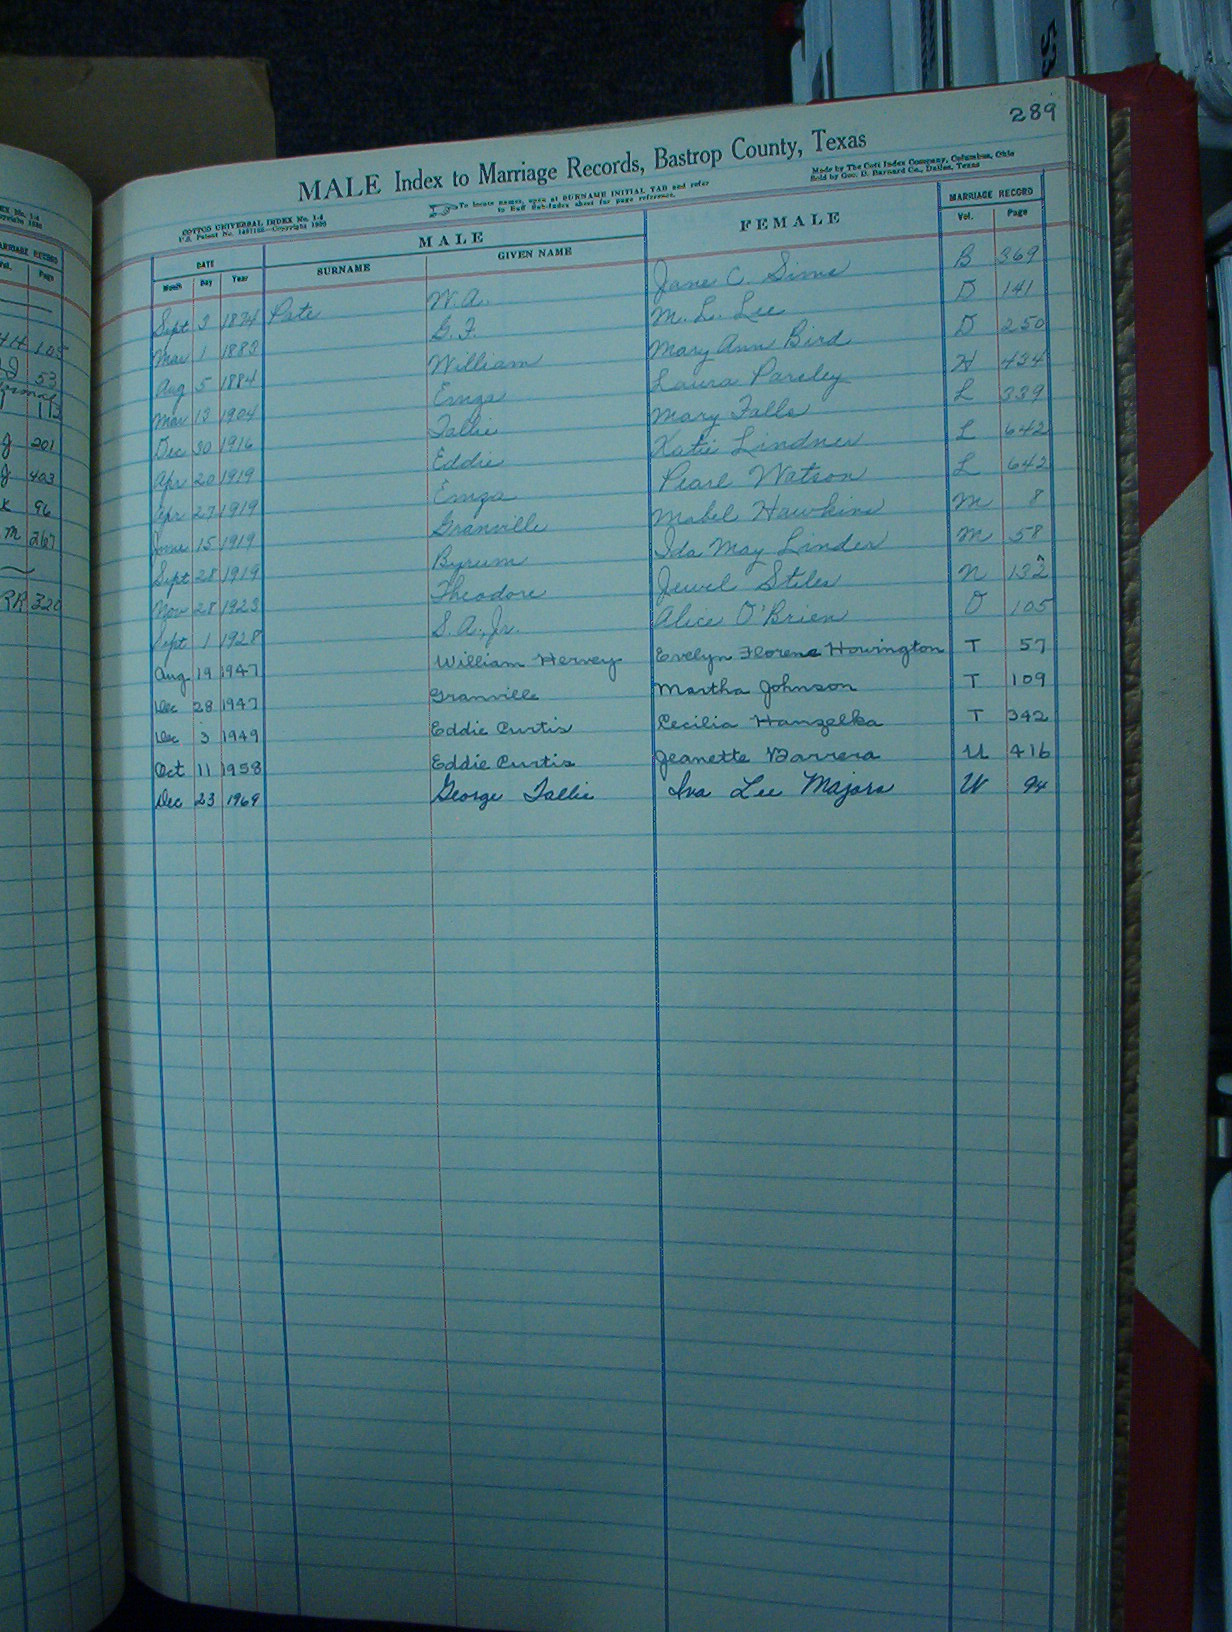 289
MALE Index to Marriage Records, Bastrop County, Texas
COTTCO UNIVERSAL INDEX No. 1-4
To locate names, open at SURNAME INITIAL TAB and refer
Made by The Cott Index Company, Columbus, Ohio
to Buff Sub-Index sheet for page reference.
Sold by Geo. D. Barnard Co., Dallas, Texas
MALE FEMALE MARRIAGE RECORD
DATE SURNAME GIVEN NAME Vol. Page
Month Day Year
Sept 3 1874 Pate W. A. Jane C. Sims B 369
Mar 1 1883 G. F. M. L. Lee D 141
Aug 5 1884 William Mary Ann Bird D 250
Mar 13 1904 Emza Laura Parsley H 434
Dec 30 1916 Tallie Mary Falls L 339
Apr 20 1919 Eddie Katie Lindner L 642
Apr 27 1919 Emza Pearl Watson L 642
June 15 1919 Granville Mabel Hawkins M 8
Sept 28 1919 Byrum Ida May Linder M 58
Nov 28 1923 Theodore Jewel Stiles N 132
Sept 1 1928 S. A., Jr. Alice O'Brien O 105
Aug 19 1947 William Hervey Evelyn Florene Howington T 57
Dec 28 1947 Granville Martha Johnson T 109
Dec 3 1949 Eddie Curtis Cecilia Hanzelka T 342
Oct 11 1958 Eddie Curtis Jeanette Barrera U 416
Dec 23 1969 George Tallie Iva Lee Majors W 94
MARRIAGE RECORD
Page
105
53
113
J 201
J 403
K 96
M 267
RR 320